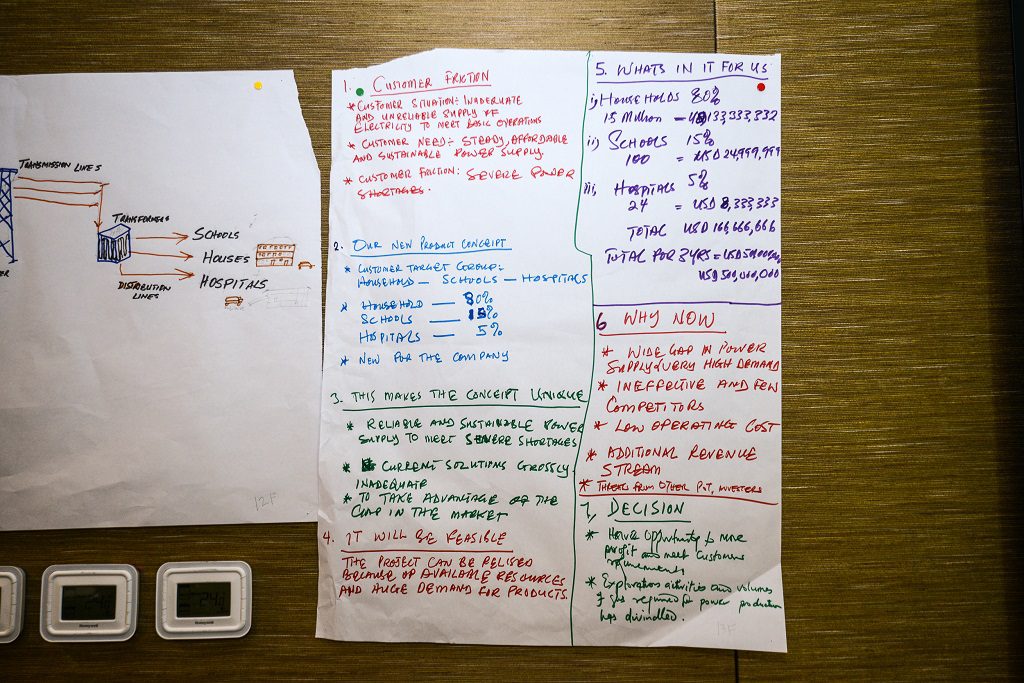 TRANSMISSION LINES
TRANSFORMERS
SCHOOLS
HOUSES
HOSPITALS
DISTRIBUTION
LINES
12F
Honeywell
Honeywell
1. CUSTOMER FRICTION
* CUSTOMER SITUATION: INADEQUATE
AND UNRELIABLE SUPPLY OF
ELECTRICITY TO MEET BASIC OPERATIONS
* CUSTOMER NEED: STEADY, AFFORDABLE
AND SUSTAINABLE POWER SUPPLY.
* CUSTOMER FRICTION: SEVERE POWER
SHORTAGES.
2. OUR NEW PRODUCT CONCEPT
* CUSTOMER TARGET GROUP:
HOUSEHOLD — SCHOOLS — HOSPITALS
* HOUSEHOLD — 80%
SCHOOLS — 15%
HOSPITALS — 5%
* NEW FOR THE COMPANY
3. THIS MAKES THE CONCEPT UNIQUE
* RELIABLE AND SUSTAINABLE POWER
SUPPLY TO MEET SEVERE SHORTAGES
* CURRENT SOLUTIONS GROSSLY
INADEQUATE
* TO TAKE ADVANTAGE OF THE
GAP IN THE MARKET
4. IT WILL BE FEASIBLE
THE PROJECT CAN BE RELISED
BECAUSE OF AVAILABLE RESOURCES
AND HUGE DEMAND FOR PRODUCTS.
5. WHATS IN IT FOR US
i) HOUSEHOLDS 80%
1.5 MILLION = 133,333,332
ii) SCHOOLS 15%
100 = USD 24,999,999
iii, HOSPITALS 5%
24 = USD 8,333,333
TOTAL USD 166,666,666
TOTAL FOR 3YRS =
USD 500,000,000
6 WHY NOW
* WIDE GAP IN POWER
SUPPLY/VERY HIGH DEMAND
* INEFFECTIVE AND FEW
COMPETITORS
* LOW OPERATING COST
* ADDITIONAL REVENUE
STREAM
* THREATS FROM OTHER POT, INVESTORS
7, DECISION
* Have Opportunity to more
profit and meet customers
requirements
* Exploration activities and volumes
of gas required for power production
has dwindled.
12F